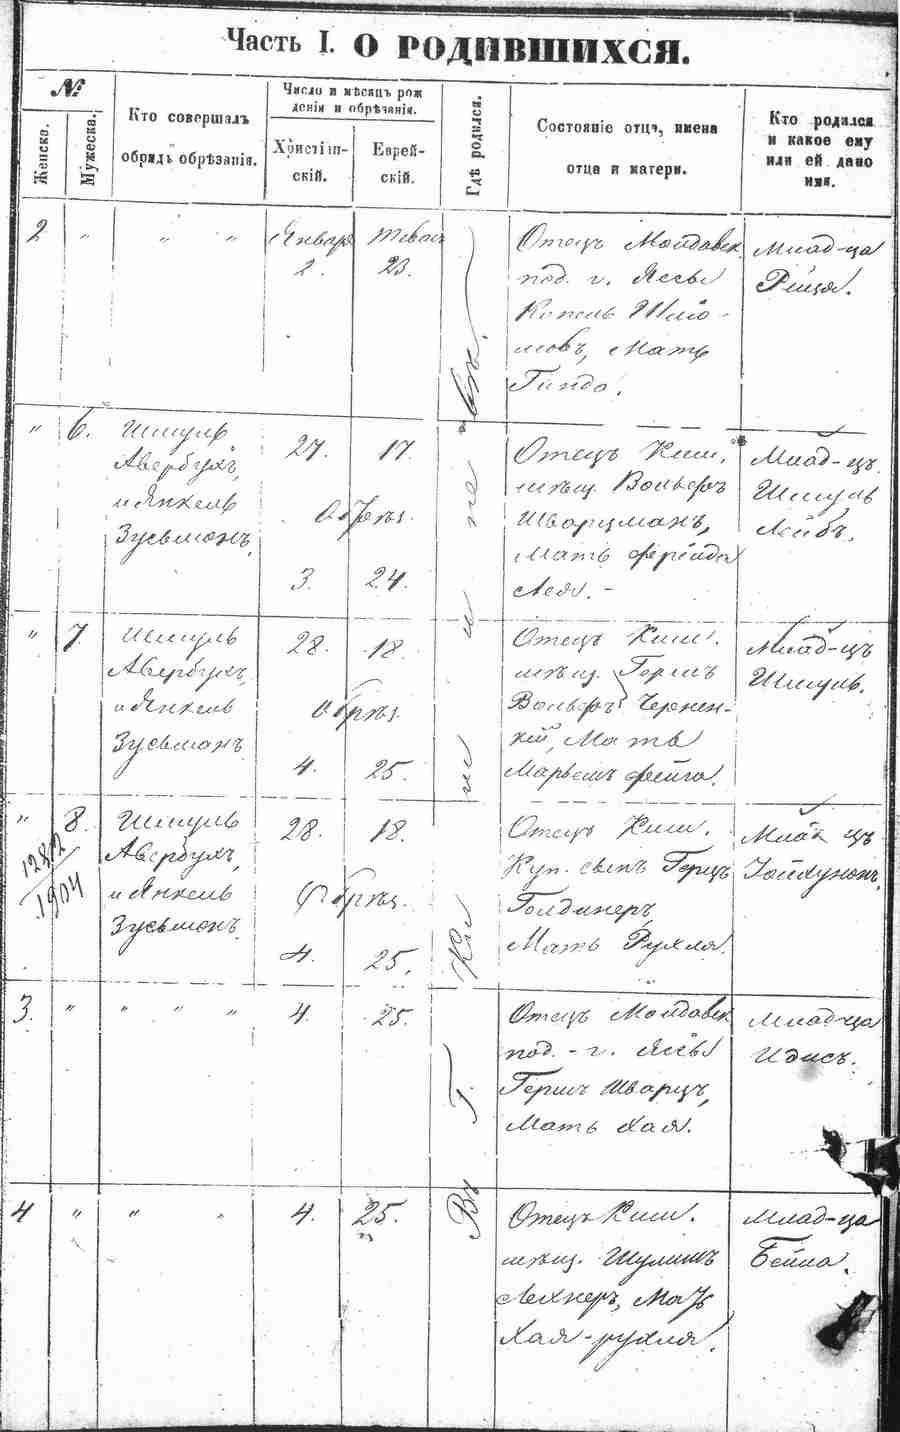 Часть I. О РОДИВШИХСЯ.
№
Женска.
Мужеска.
Кто совершалъ
обрядъ обрѣзанія.
Число и мѣсяцъ рож
денія и обрѣзанія.
Христіан-
скій.
Еврей-
скій.
Гдѣ родился.
Состояніе отца, имена
отца и матери.
Кто родился
и какое ему
или ей дано
имя.
Въ Г. Кишиневѣ.
2 " " " Января Тевесъ
2. 23.
Отецъ Молдавск.
под. г. Яссы
Копель Шлiо-
мовъ, Мать
Гинда.
Млад-ца
" 6. Шмуль
Авербухъ,
и Янкель
Зусьманъ.
27. 17.
Обрѣз.
3. 24.
Отецъ Киш.
мѣщ. Вольфъ
Шварцманъ,
Мать Фрейда
Лея. -
Млад-цъ
Шмуль
Лейбъ.
" 7. Шмуль
Авербухъ,
и Янкель
Зусьманъ
28. 18.
Обрѣз.
4. 25.
Отецъ Киш.
мѣщ. Герш
Вольфъ Чернен-
кій, Мать
Марьемъ Фейга.
Млад-цъ
Шмуль.
" 8. Шмуль
Авербухъ,
и Янкель
Зусьманъ
1904
28. 18.
Обрѣз.
4. 25.
Отецъ Киш.
Куп. сынъ Герцъ
Голдинер,
Мать Рухля.
Млад цъ
3. " " " " 4. 25.
Отецъ Молдавск
под. - г. Яссы
Герш Шварцъ,
Мать Хая.
Млад-ца
Идисъ.
4 " " " 4. 25.
Отецъ Киш.
мѣщ. Шулимъ
Лехнеръ, Мать
Хая-рухля.
Млад-ца
Бейла.